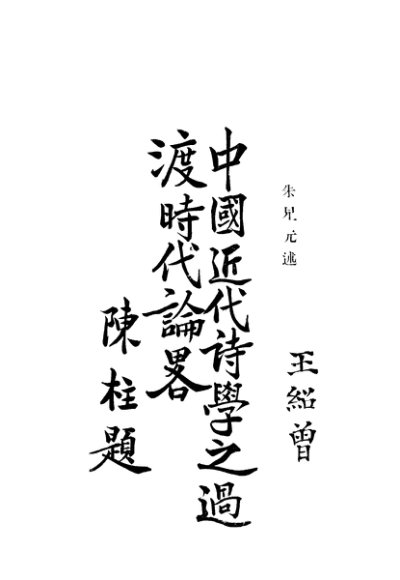 朱星元述
王紹曾
中國近代诗學之過
渡時代論畧
陳柱題